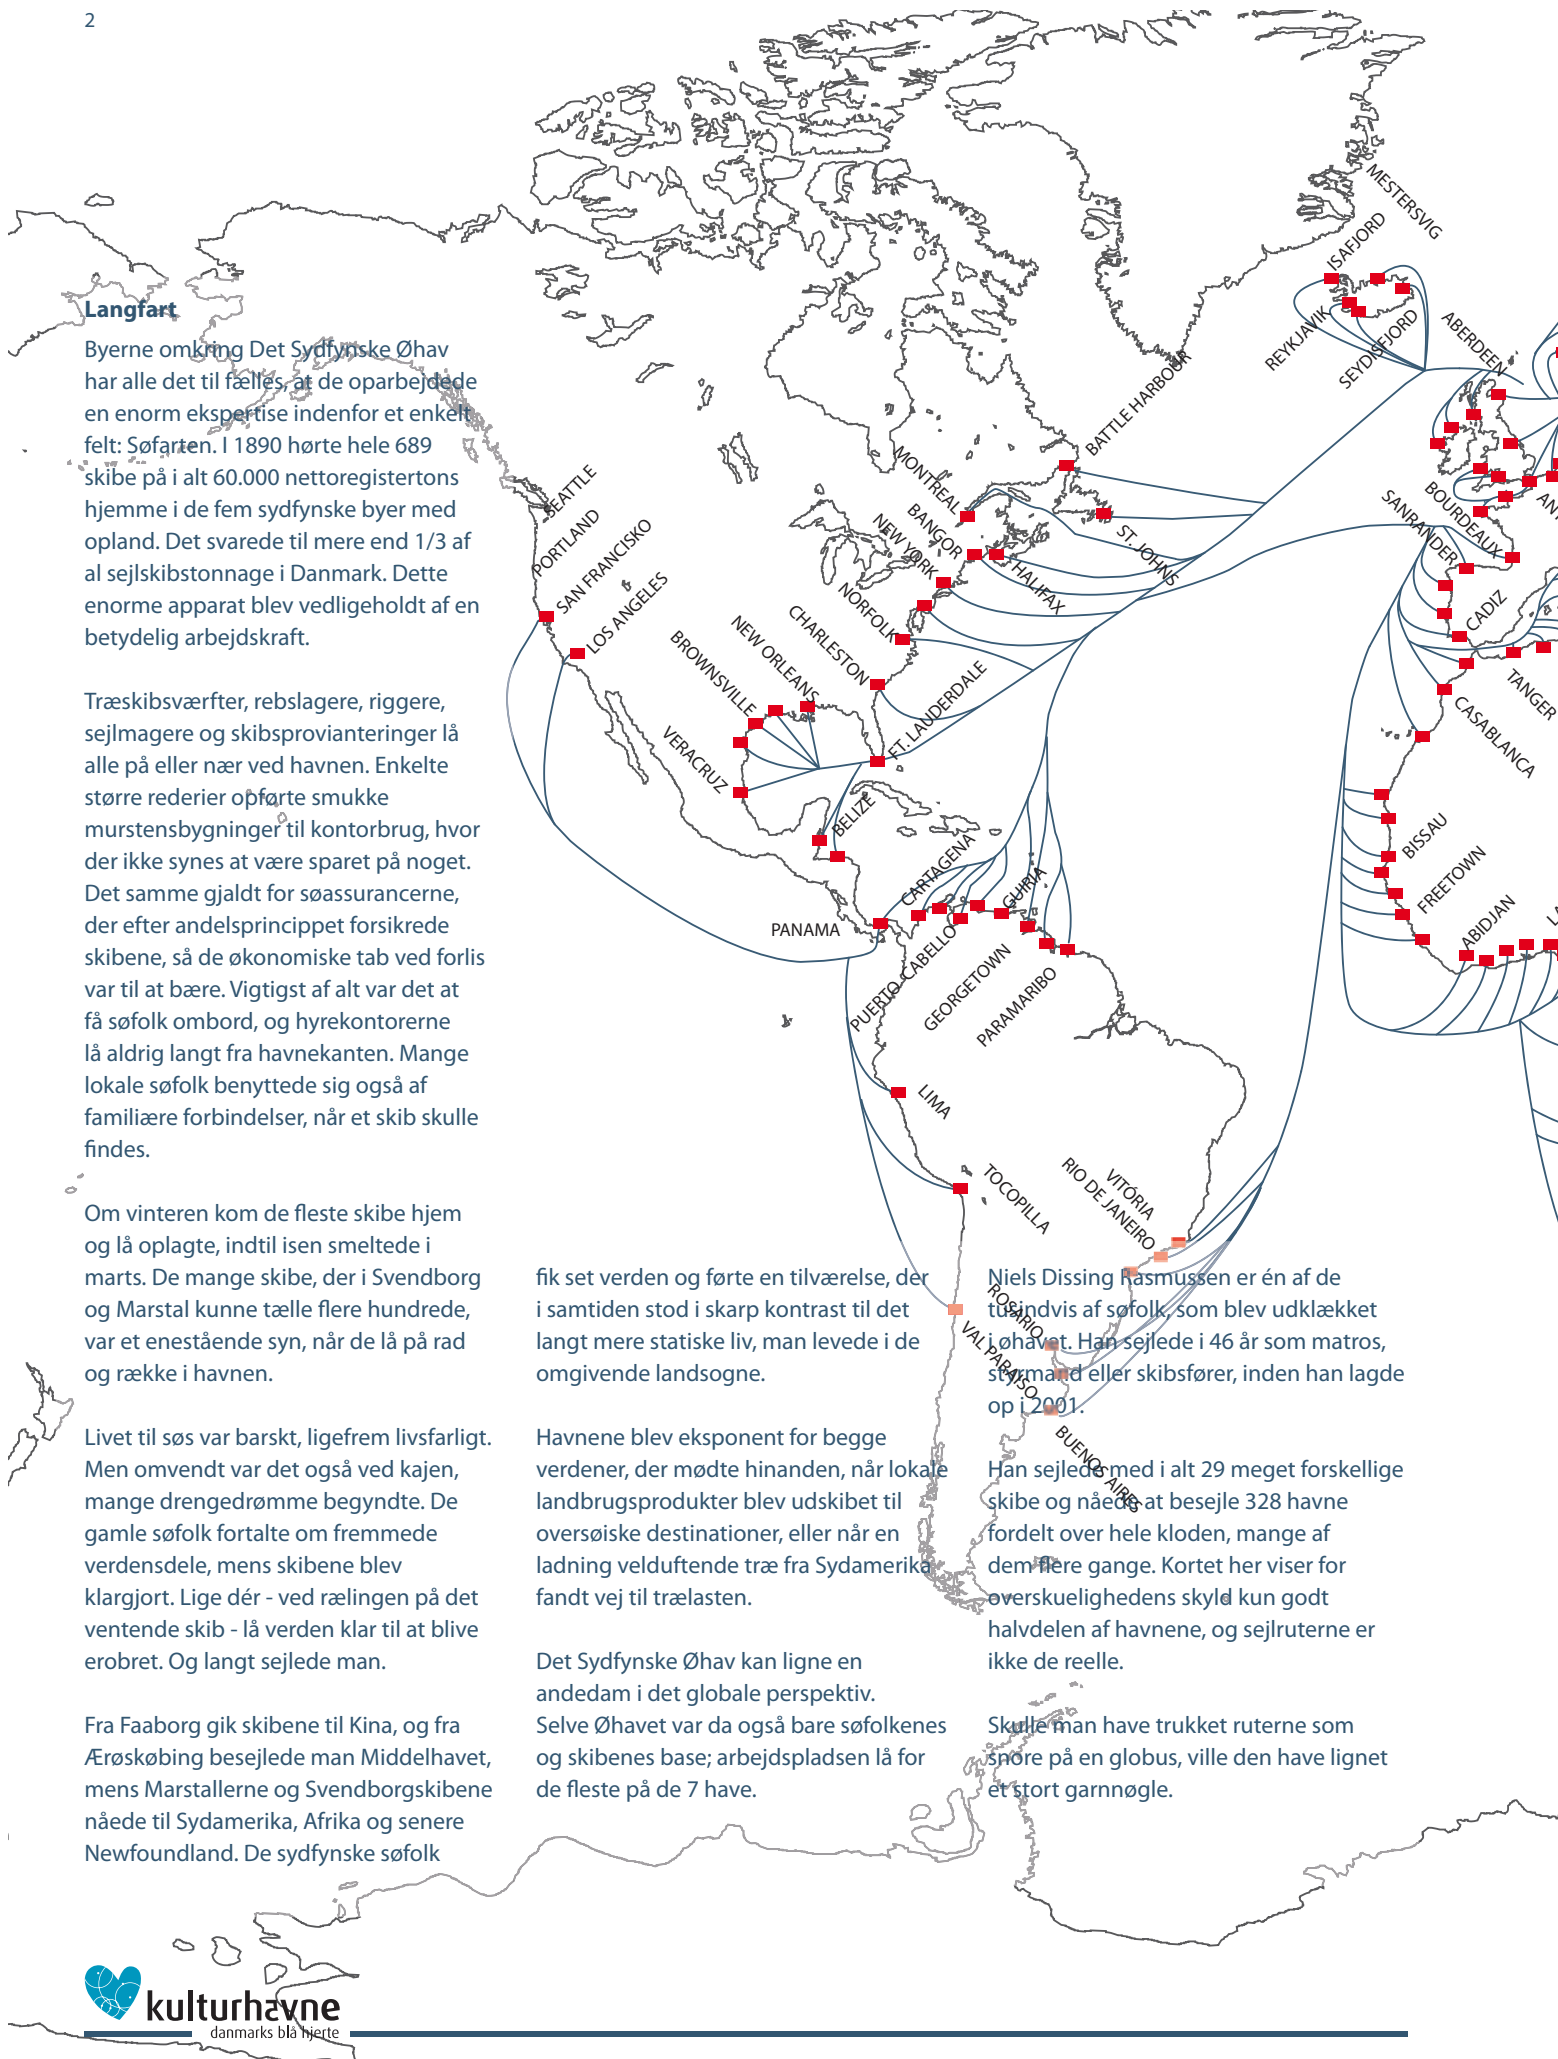 2
Langfart
Byerne omkring Det Sydfynske Øhav
har alle det til fælles, at de oparbejdede
en enorm ekspertise indenfor et enkelt
felt: Søfarten. I 1890 hørte hele 689
skibe på i alt 60.000 nettoregistertons
hjemme i de fem sydfynske byer med
opland. Det svarede til mere end 1/3 af
al sejlskibstonnage i Danmark. Dette
enorme apparat blev vedligeholdt af en
betydelig arbejdskraft.
Træskibsværfter, rebslagere, riggere,
sejlmagere og skibsprovianteringer lå
alle på eller nær ved havnen. Enkelte
større rederier opførte smukke
murstensbygninger til kontorbrug, hvor
der ikke synes at være sparet på noget.
Det samme gjaldt for søassurancerne,
der efter andelsprincippet forsikrede
skibene, så de økonomiske tab ved forlis
var til at bære. Vigtigst af alt var det at
få søfolk ombord, og hyrekontorerne
lå aldrig langt fra havnekanten. Mange
lokale søfolk benyttede sig også af
familiære forbindelser, når et skib skulle
findes.
Om vinteren kom de fleste skibe hjem
og lå oplagte, indtil isen smeltede i
marts. De mange skibe, der i Svendborg
og Marstal kunne tælle flere hundrede,
var et enestående syn, når de lå på rad
og række i havnen.
Livet til søs var barskt, ligefrem livsfarligt.
Men omvendt var det også ved kajen,
mange drengedrømme begyndte. De
gamle søfolk fortalte om fremmede
verdensdele, mens skibene blev
klargjort. Lige dér - ved rælingen på det
ventende skib - lå verden klar til at blive
erobret. Og langt sejlede man.
Fra Faaborg gik skibene til Kina, og fra
Ærøskøbing besejlede man Middelhavet,
mens Marstallerne og Svendborgskibene
nåede til Sydamerika, Afrika og senere
Newfoundland. De sydfynske søfolk
fik set verden og førte en tilværelse, der
i samtiden stod i skarp kontrast til det
langt mere statiske liv, man levede i de
omgivende landsogne.
Havnene blev eksponent for begge
verdener, der mødte hinanden, når lokale
landbrugsprodukter blev udskibet til
oversøiske destinationer, eller når en
ladning velduftende træ fra Sydamerika
fandt vej til trælasten.
Det Sydfynske Øhav kan ligne en
andedam i det globale perspektiv.
Selve Øhavet var da også bare søfolkenes
og skibenes base; arbejdspladsen lå for
de fleste på de 7 have.
Niels Dissing Rasmussen er én af de
tusindvis af søfolk, som blev udklækket
i øhavet. Han sejlede i 46 år som matros,
styrmand eller skibsfører, inden han lagde
op i 2001.
Han sejlede med i alt 29 meget forskellige
skibe og nåede at besejle 328 havne
fordelt over hele kloden, mange af
dem flere gange. Kortet her viser for
overskuelighedens skyld kun godt
halvdelen af havnene, og sejlruterne er
ikke de reelle.
Skulle man have trukket ruterne som
snore på en globus, ville den have lignet
et stort garnnøgle.
MESTERSVIG
ISAFJORD
REYKJAVIK
SEYDISFJORD
ABERDEEN
BATTLE HARBOUR
MONTREAL
BANGOR
NEW YORK
NORFOLK
CHARLESTON
NEW ORLEANS
BROWNSVILLE
VERACRUZ
SEATTLE
PORTLAND
SAN FRANCISKO
LOS ANGELES
ST. JOHNS
HALIFAX
FT. LAUDERDALE
BELIZE
SANRANDER
BOURDEAUX
ANT
CADIZ
TANGER
CASABLANCA
BISSAU
FREETOWN
ABIDJAN
LA
CARTAGENA
GUIRIA
PANAMA
PUERTO CABELLO
GEORGETOWN
PARAMARIBO
LIMA
TOCOPILLA
VITÓRIA
RIO DE JANEIRO
ROSARIO
VAL PARAISO
BUENOS AIRES
kulturhavne
danmarks blå hjerte